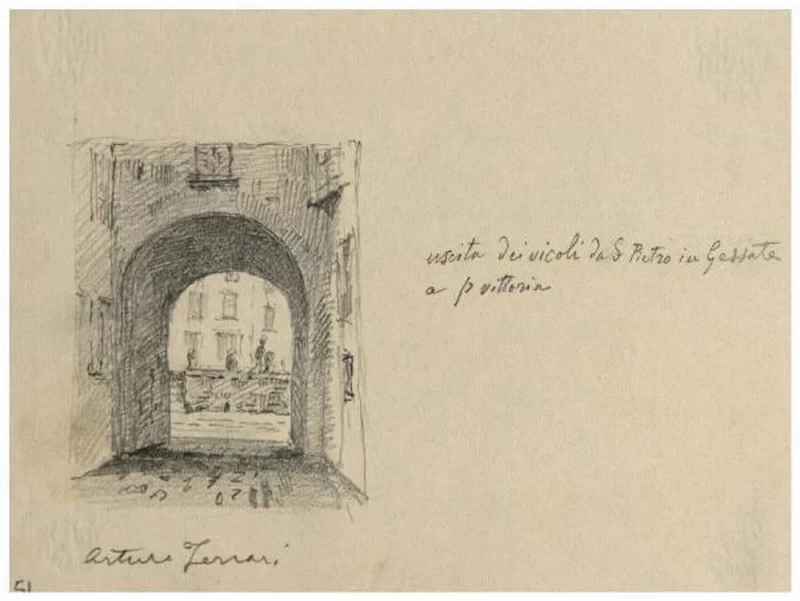 uscita dei vicoli da S Pietro in Gessate
a p vittoria
Arturo Ferrari
51